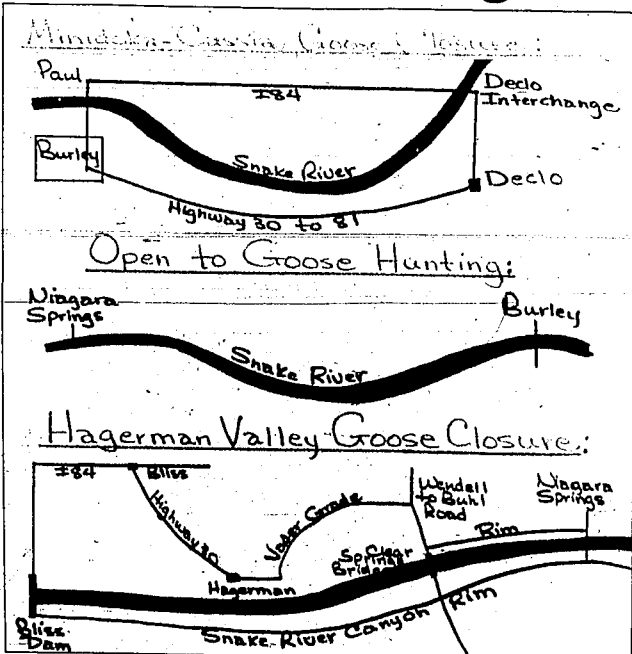 Minidoka-Cassia Goose Closure:
Paul
I84
Declo
Interchange
Burley
Snake River
Declo
Highway 30 to 81
Open to Goose Hunting:
Niagara
Springs
Burley
Snake River
Hagerman Valley Goose Closure:
I84
Bliss
Highway 30
Vader Grade
Wendell
to Buhl
Road
Niagara
Springs
Rim
Clear
Springs
Bridge
Hagerman
Bliss
Dam
Snake River Canyon Rim